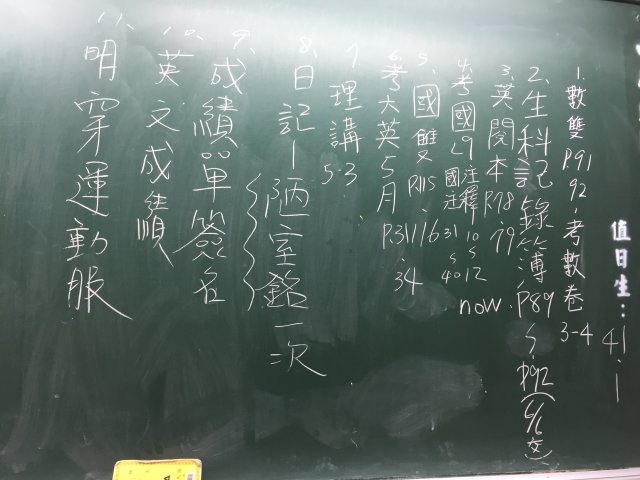 值日生：41、1
1. 數雙P91 92、考數卷3-4
2. 生科記錄簿P89～P92（6/6交）
3. 英閱本P.78 79
4. 考國L9注釋10～12 now
國注31～40
5. 國雙P.115、116
6. 考大英5月P.31、34
7. 理講5-3
8. 日記－陋室銘一次
9. 成績單簽名
10. 英文成績
11. 明穿運動服